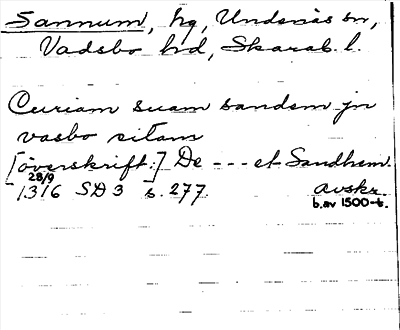 Sannum, hg, Undenäs sn,
Vadsbo hd, Skarab. l.
Curiam suam sandem jn
vasbo sitam
[överskrift:] De --- et Sandhem.
28/9
1316 SD 3 s. 277 avskr.
b. av 1500-t.